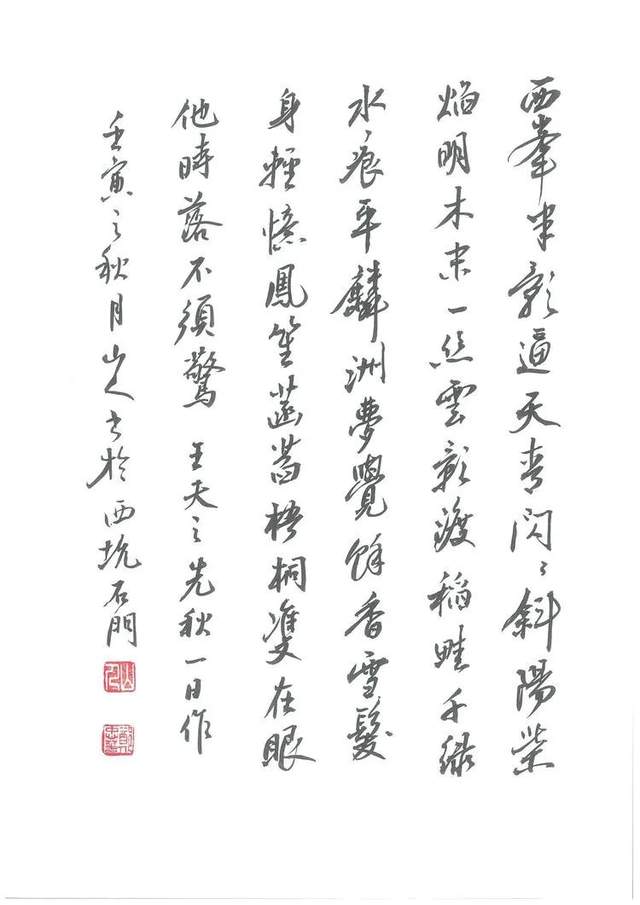 西峯半影逼天青閃〻斜陽紫
焰明木末一丝雲影渡稻畦千緑
水痕平麟洲夢覺餘香雪髮
身輕憶鳳笙菡萏梧桐雙在眼
他時落不須驚 王夫之先秋一日作
壬寅之秋月山人書於西坑石門